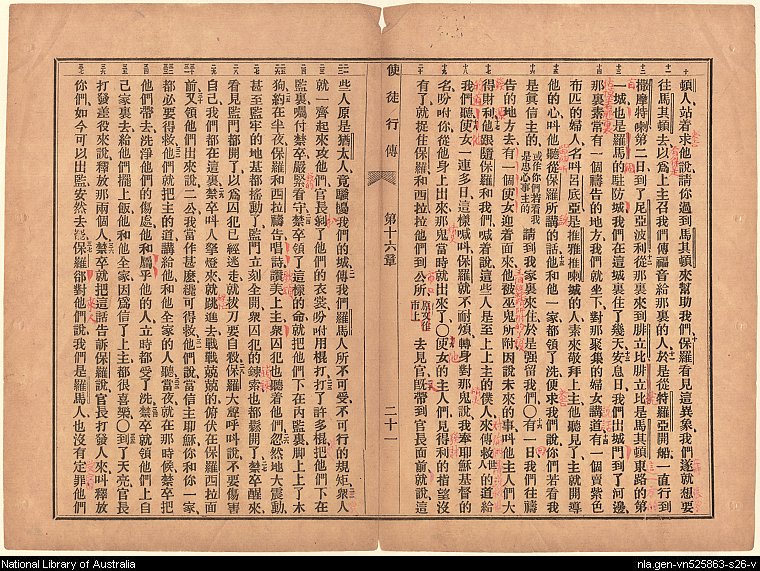 頓人站着求他說請你過到馬其頓來幫助我們保羅看見這異象我們遂就想要
往馬其頓去以為上主召我們傳福音給那裏的人於是從特羅亞開船一直行到
撒摩特喇第二日到了尼亞波利從那裏來到腓立比腓立比是馬其頓東路的第
一城也是羅馬的駐防城我們在這城裏住了幾天安息日我們出城門到了河邊
那裏素常有一個禱告的地方我們就坐下對那聚集的婦女講道有一個賣紫色
布匹的婦人名叫呂底亞是推雅推喇城的人素來敬拜上主他聽見了主就開導
他的心叫他聽從保羅所講的話他和他一家都領了洗便求我們說你們若看我
是眞信主的或作你們若看我是忠心事主的請到我家裏來住於是強留我們〇有一日我們往禱
告的地方去有一個使女迎着面來他被巫鬼所附因說未來的事叫他主人們大
得財利他跟隨保羅和我們喊着說這些人是至上上主的僕人來傳救世的道給
我們聽使女一連多日這樣喊叫保羅就不耐煩轉身對那鬼說我奉耶穌基督的
名吩咐你從他身上出來那鬼當時就出來了〇使女的主人們見得利的指望沒
有了就捉住保羅和西拉拉他們到公所原文作市上去見官旣帶到官長面前就說這
使徒行傳 第十六章 二十一
些人原是猶太人竟騷擾我們的城傳我們羅馬人所不可受不可行的規矩衆人
就一齊起來攻他們官長剝了他們的衣裳吩咐用棍打打了許多棍把他們下在
監裏囑付禁卒嚴緊看守禁卒領了這樣的命就把他們下在內監裏脚上上了木
狗約在半夜保羅和西拉禱告唱詩讚美上主衆囚犯也聽着他們忽然地大震動
甚至監牢的地基都搖動了監門立刻全開衆囚犯的鎖索也都鬆開了禁卒醒來
看見監門都開了以為囚犯已經逃走就拔刀要自殺保羅大聲呼叫說不要傷害
自己我們都在這裏禁卒叫人拏燈來就跳進去戰戰兢兢的俯伏在保羅西拉面
前又領他們出來說二公我當作甚麼纔可得救他們說當信主耶穌你和你一家
都必要得救他們就把主的道講給他和他全家的人聽當夜就在那時候禁卒把
他們帶去洗淨他們的傷處他和屬乎他的人立時都受了洗禁卒就領他們上自
己家裏去給他們擺上飯他和他全家因為信了上主都很喜樂〇到了天亮官長
打發差役來說釋放那兩個人禁卒就把這話告訴保羅說官長打發人來叫釋放
你們如今可以出監安然去罷保羅卻對他們說我們是羅馬人也沒有定罪他們
National Library of Australia
nla.gen-vn525863-s26-v